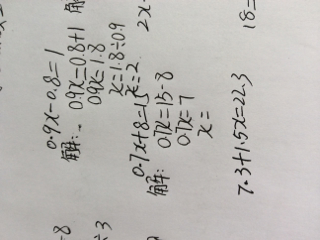 0.9x-0.8=1
解: 0.9x=0.8+1
0.9x=1.8
x=1.8÷0.9
x=2
0.7x+8=15
解: 0.7x=15-8
0.7x=7
x=
7.3+1.5x=22.3
解
2x-
18=
-8
÷3